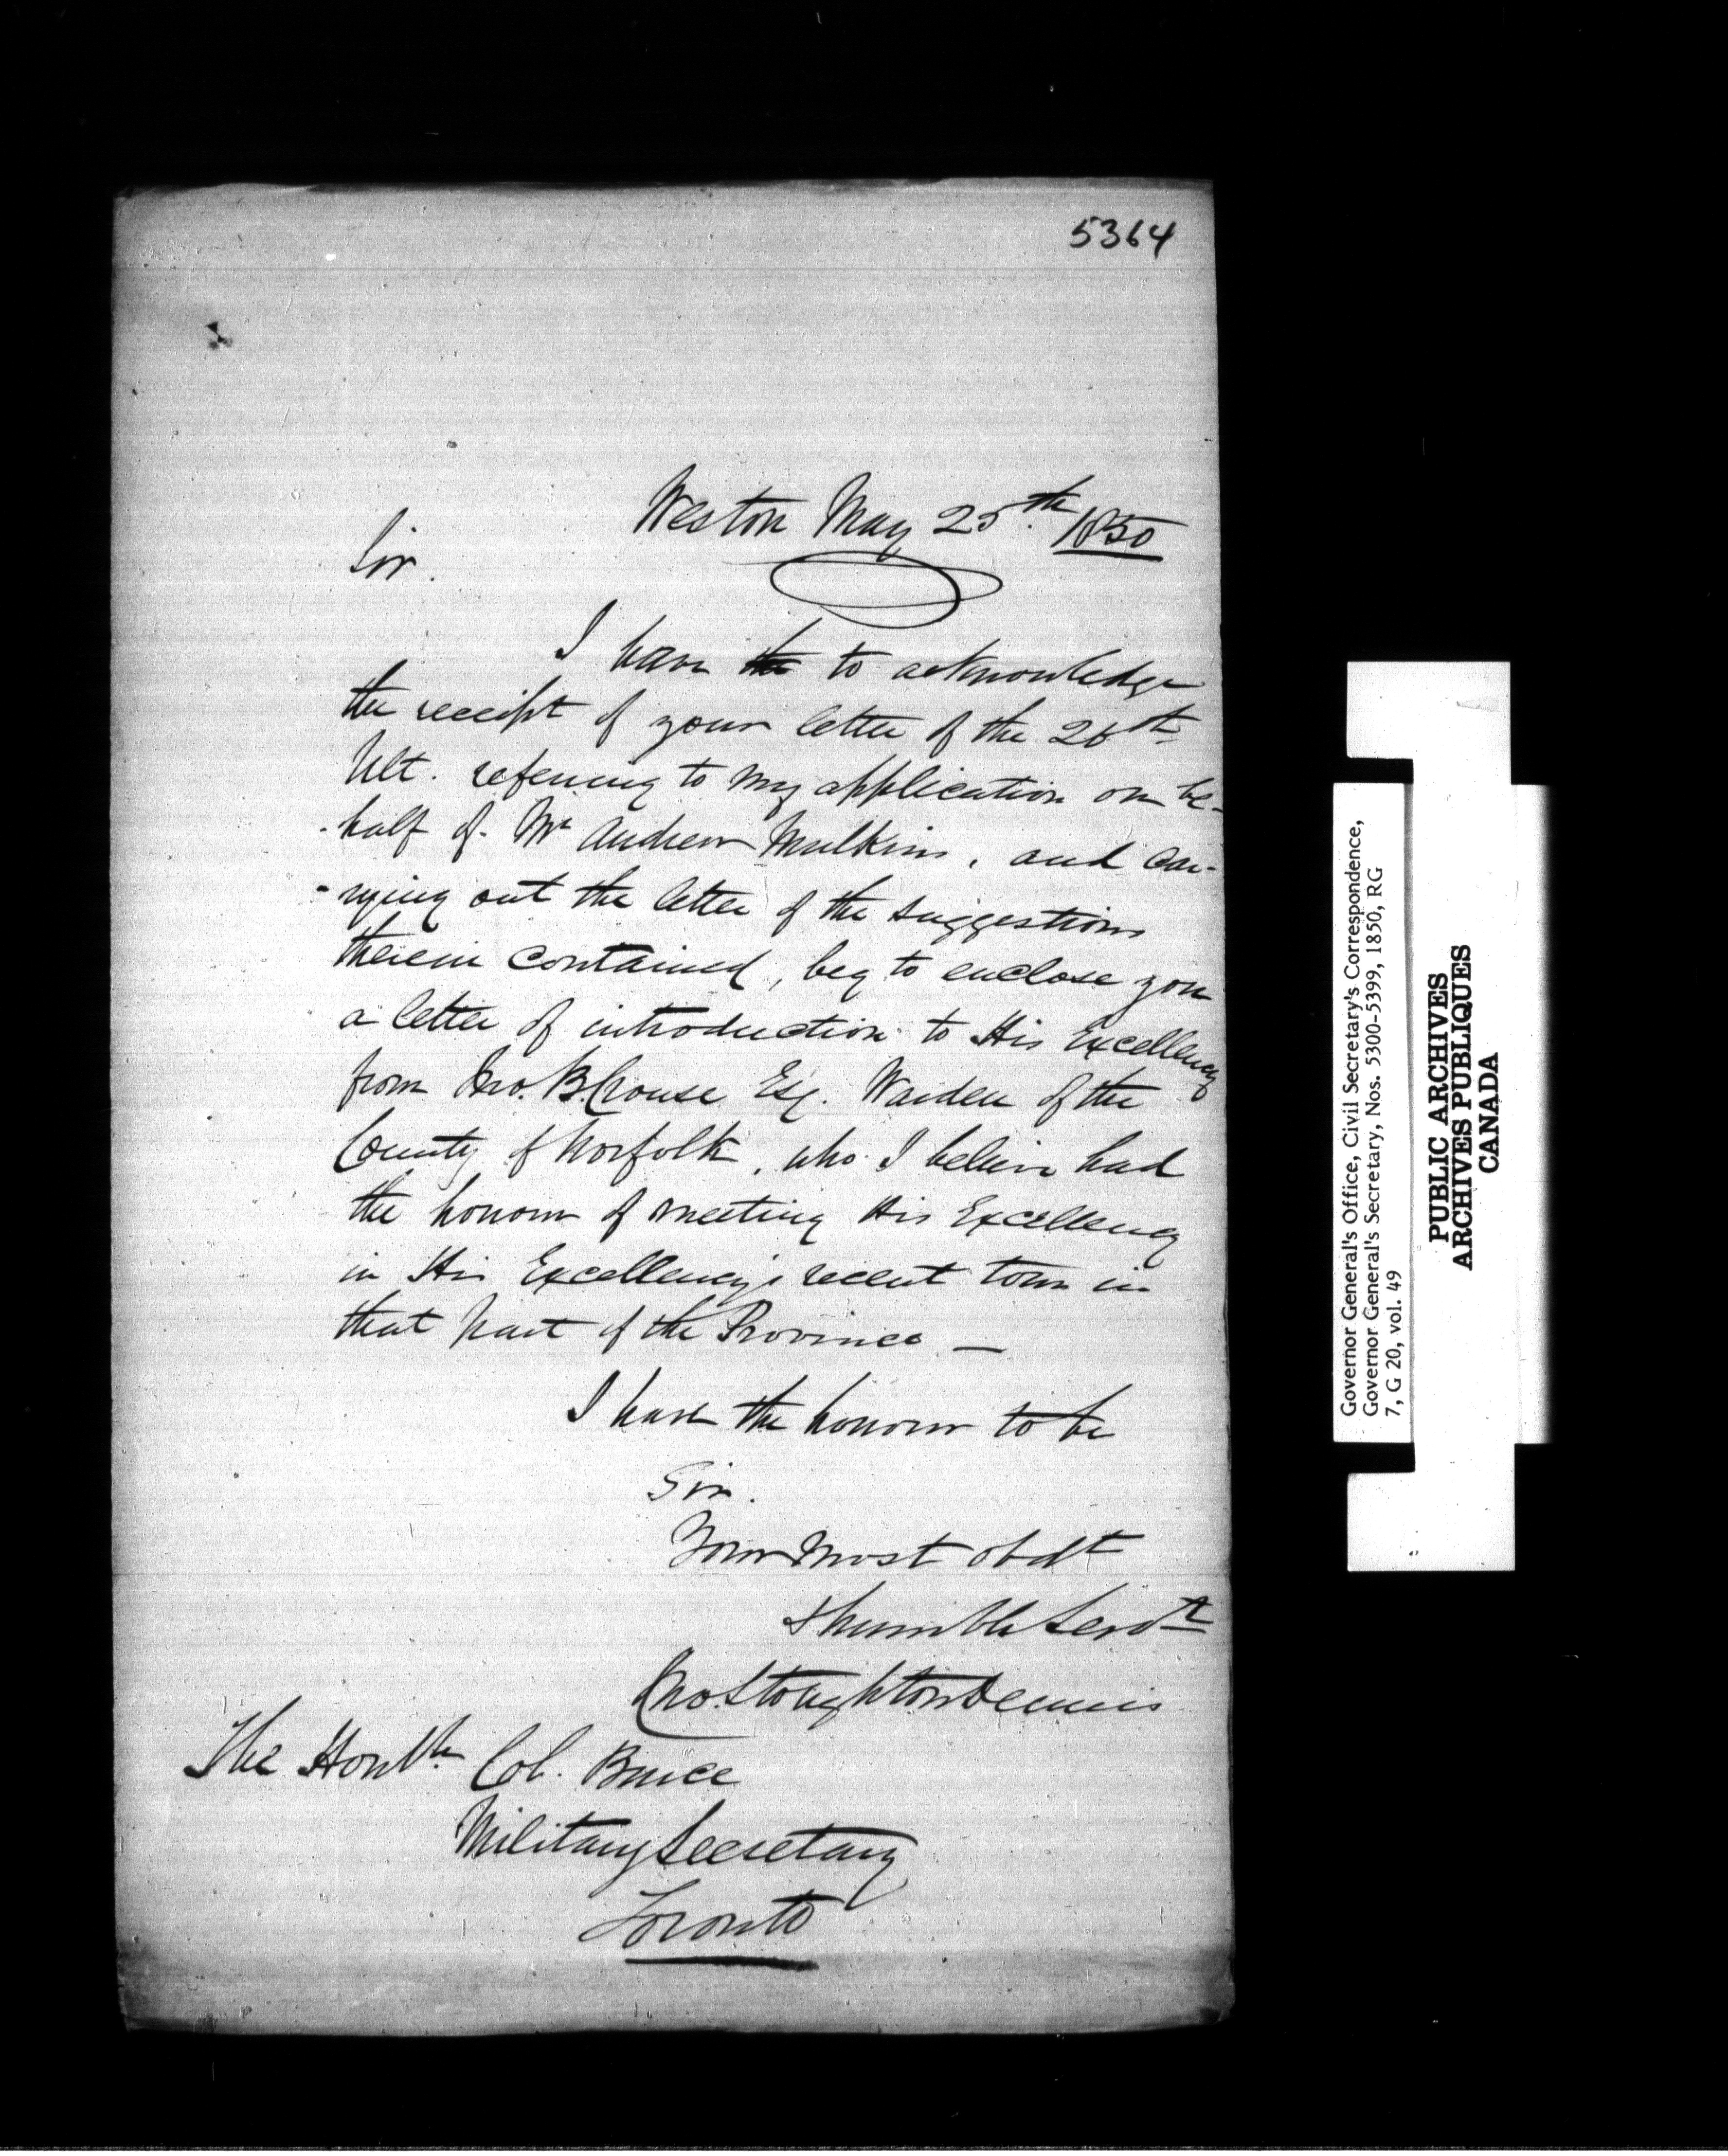 5364
Weston May 25th. 1850
Sir.
I have the to acknowledge
the receipt of your letter of the 26th
Ult. referring to my application on be-
-half of Mr Andrew Mulkins, and car-
-rying out the letter of the suggestions
therein contained, beg to enclose you
a letter of introduction to His Excellency
from Jno. B. Crouse Esq. Warden of the
County of Norfolk, who I believe had
the honour of meeting His Excellency
in His Excellency's recent tour in
that part of the Province —
I have the honour to be
Sir.
Your Most obdt
& humble Servt
Jno. Stoughton Dennis
The Honble. Col. Bruce
Military Secretary
Toronto
Governor General's Office, Civil Secretary's Correspondence,
Governor General's Secretary, Nos. 5300-5399, 1850, RG
7, G 20, vol. 49
PUBLIC ARCHIVES
ARCHIVES PUBLIQUES
CANADA